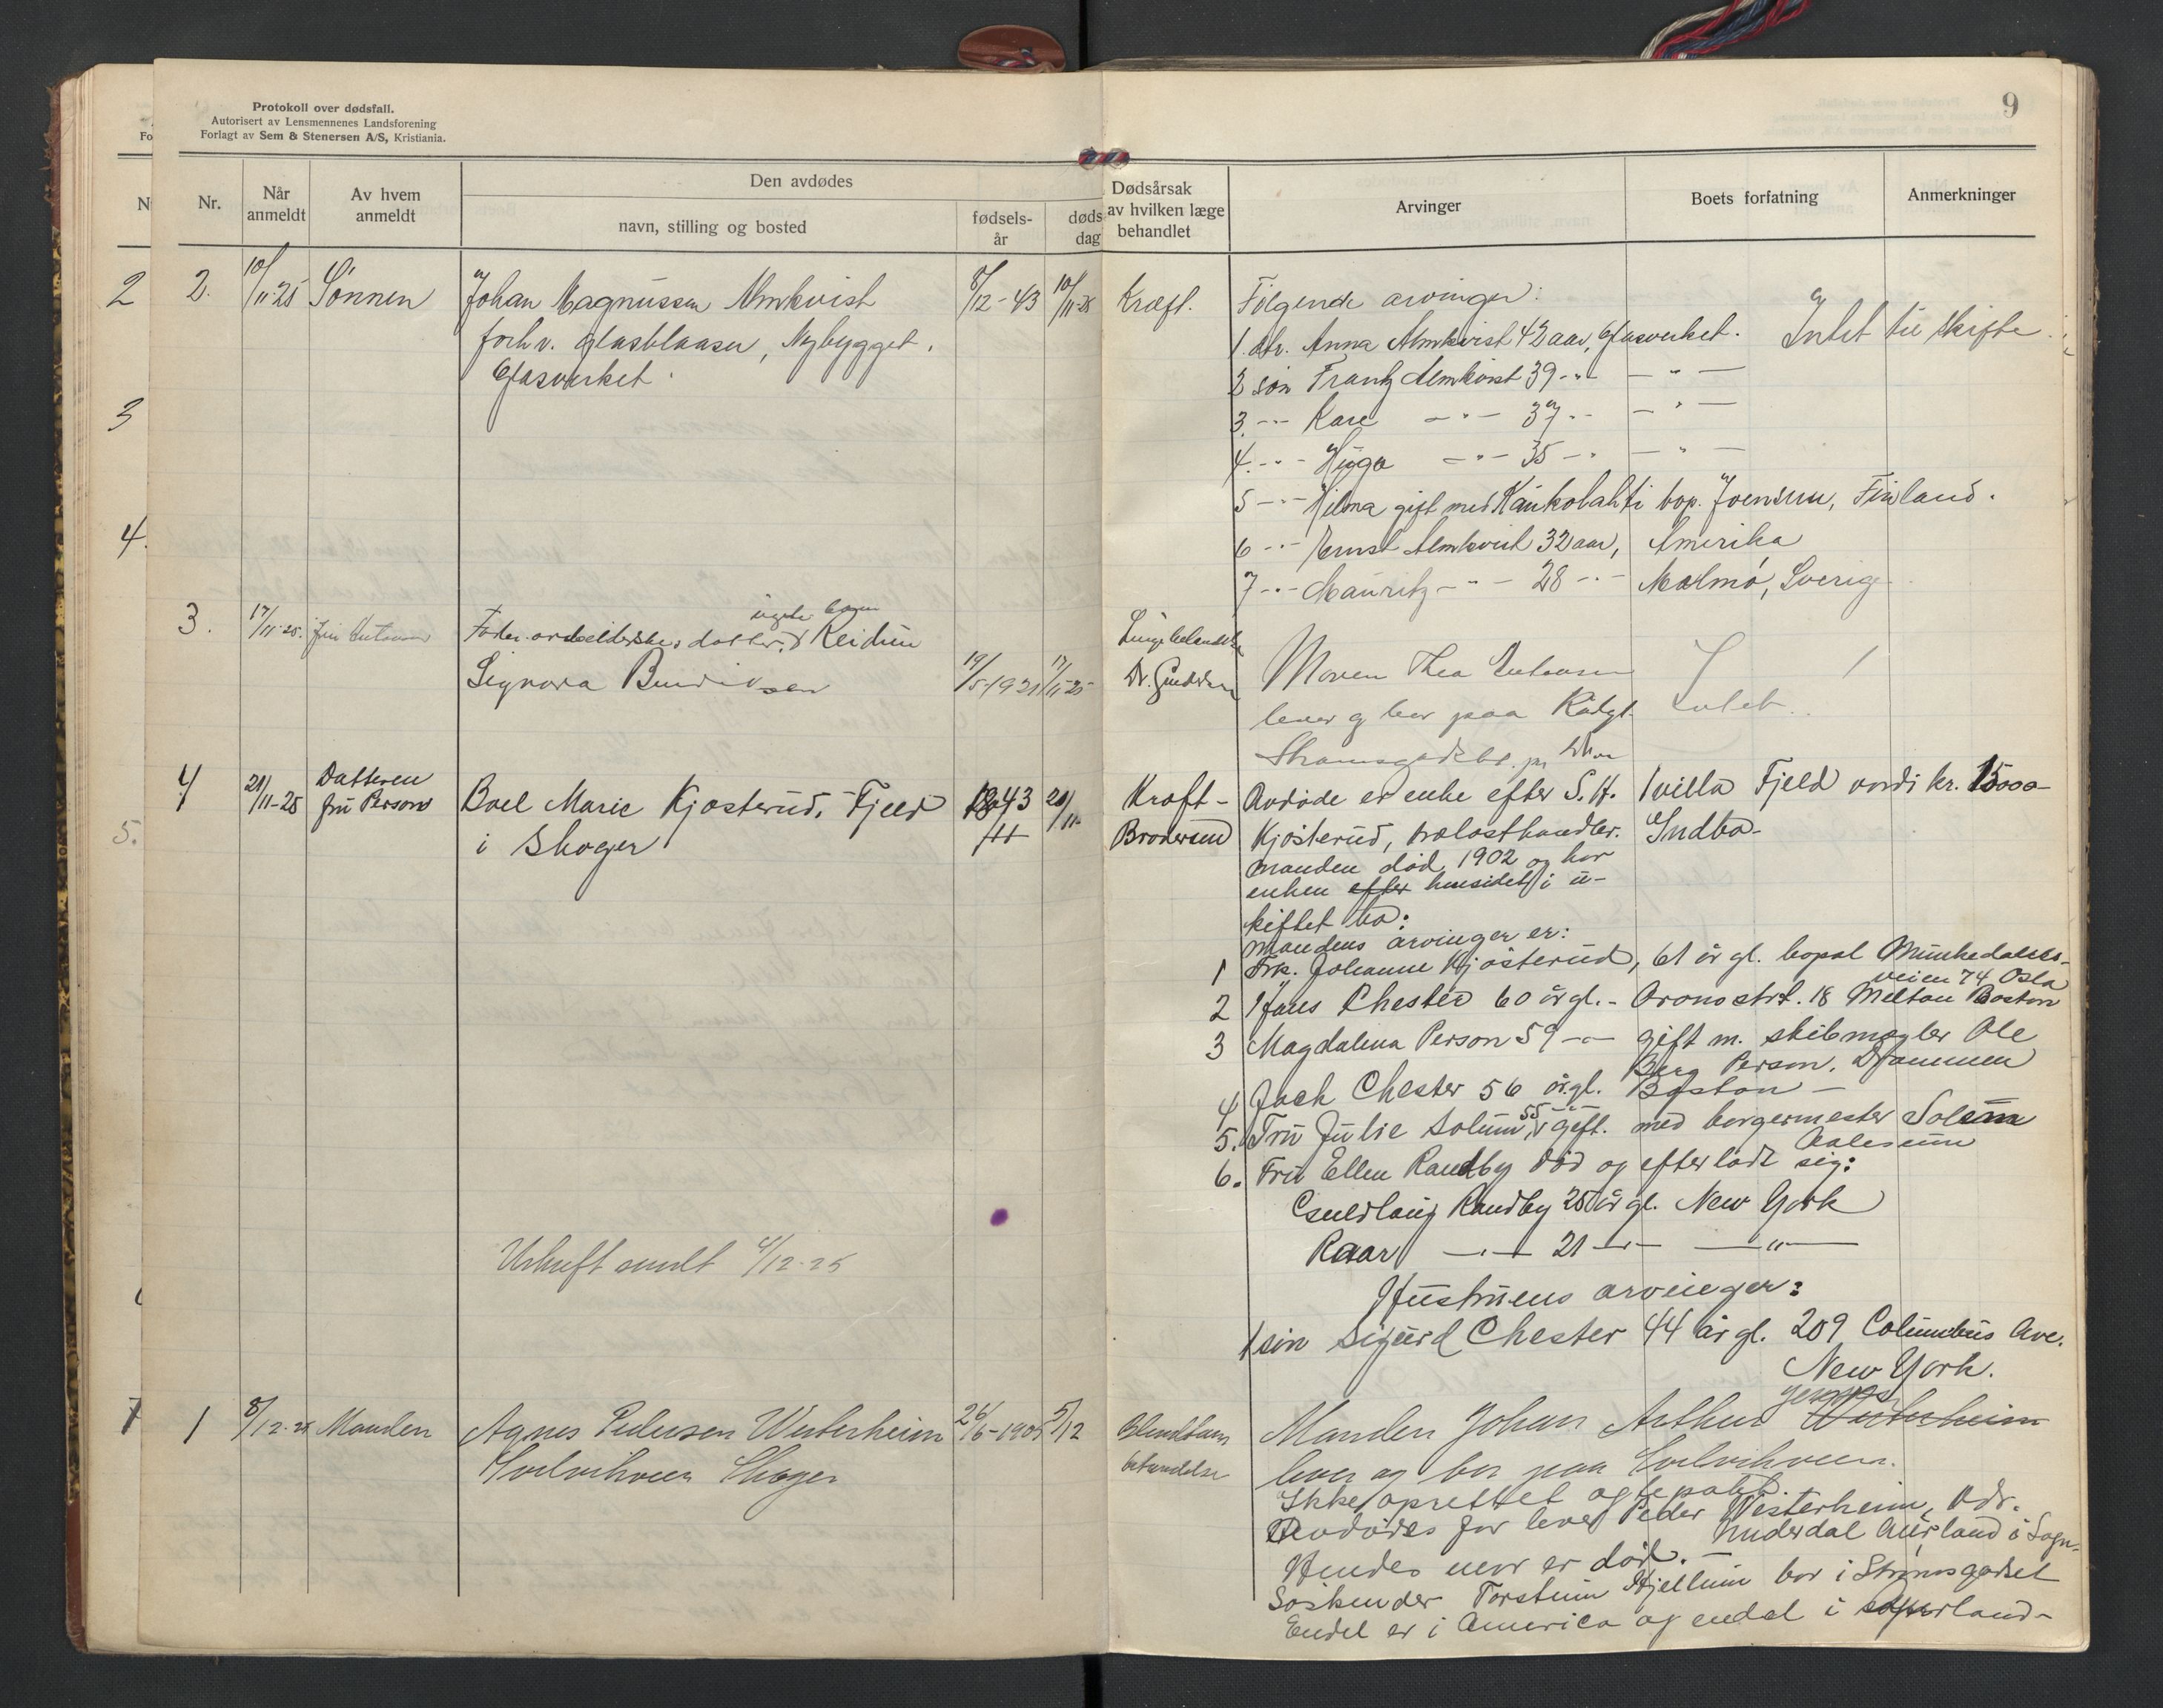 Protokoll over dødsfall.
Autorisert av Lensmennenes Landsforening
Forlagt av Sem & Stenersen A/S, Kristiania.
9
Nr.
Når anmeldt
Av hvem anmeldt
Den avdødes
navn, stilling og bosted
fødsels-år
døds dag
Dødsårsak av hvilken læge behandlet
Arvinger
Boets forfatning
Anmerkninger
2 2. 10/11-25 Sønnen Johan Magnussen Almkvist 8/12-43 10/11-25 Kræft.
forhv. glasblaaser, Nybygget.
Glasverket.
Følgende arvinger:
1. dtr. Anna Almkvist 42 aar, Glasverket. Intet til skifte
2 søn Frantz Almkvist 39 -"- - " -
3. -"- Kare -"- 37 -"- - " -
4. -"- Hugo -"- 35 -"- - " -
5 -"- Hilma gift med Kaukolahti bop. Joensuu, Finland.
6 -"- Ernst Almkvist 32 aar, Amerika
7 -"- Mauritz -"- 28 -"- Malmø, Sverige
3
4.
5.
3. 17/11-25. Fru
datter, Reidun
Signora 19/5-1921 17/11-25
Dr.
Moren Thea
lever og bor paa
Intet
4 21/11-25 Datteren fru Person Boel Marie Kjøsterud, Fjeld 1843 20/11
i Skoger
Kræft-
Brodersen
Avdøde er enke efter S. H. 1 villa Fjeld verdi kr. 15000-
Kjøsterud, trælasthandler. Indbo-
manden død 1902 og har
enken efter hensidet i u-
skiftet bo:
Mandens arvinger er:
1 Frk. Johanne Kjøsterud, 61 år gl. bopæl Munkedamsveien 74 Oslo
2 Hans Chester 60 år gl. - Oronostrt. 18 Melton Boston
3 Magdalena Person 59 -"- gift m. skibmægler Ole
Berg Person. Drammen
4 Jack Chester 56 år gl. Boston -
5. Fru Julie Solum, 55 -"- gift. med borgermester Solum
Aalesund
6. Fru Ellen Randby død og efterlodt sig:
Randby 25 år gl. New York
Roar -"- 21 -"- -"-
Hustruens arvinger:
1 søn Sigurd Chester 44 år gl. 209 Columbus Ave.
New York.
Utskrift sendt 4/12-25
7 1 8/12-25 Manden Agnes Pedersen Westerheim 26/6-1905 5/12
Skoger
Blindtarm
betændelse
Manden Johan Arthur Westerheim
lever og bor paa
Ikke oprettet ægtepakt.
Avdødes far lever Peder Westerheim, Adr.
Underdal Aurland i Sogn.
Hendes mor er død. -
Søskender Torstein Hjellum bor i Strømsgodset
Endel er i America og endel i Aurland-